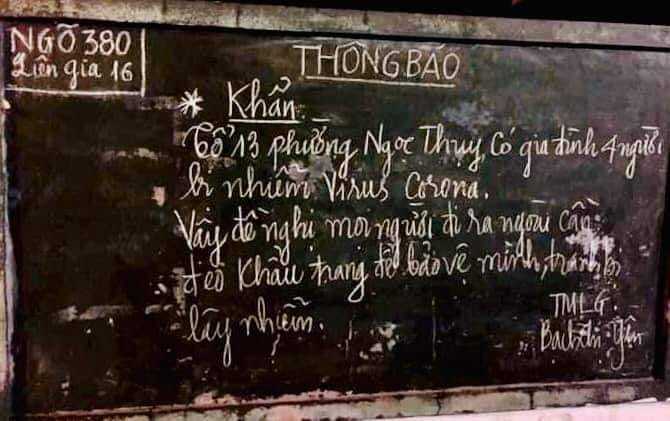 NGÕ 380
Liên gia 16
THÔNG BÁO
* Khẩn
Tổ 13 phường Ngọc Thụy, Có gia đình 4 người
bị nhiễm Virus Corona.
Vậy đề nghị mọi người đi ra ngoài cần
đeo Khẩu trang để bảo vệ mình, tránh bị
lây nhiễm.
TMLG.
Yên